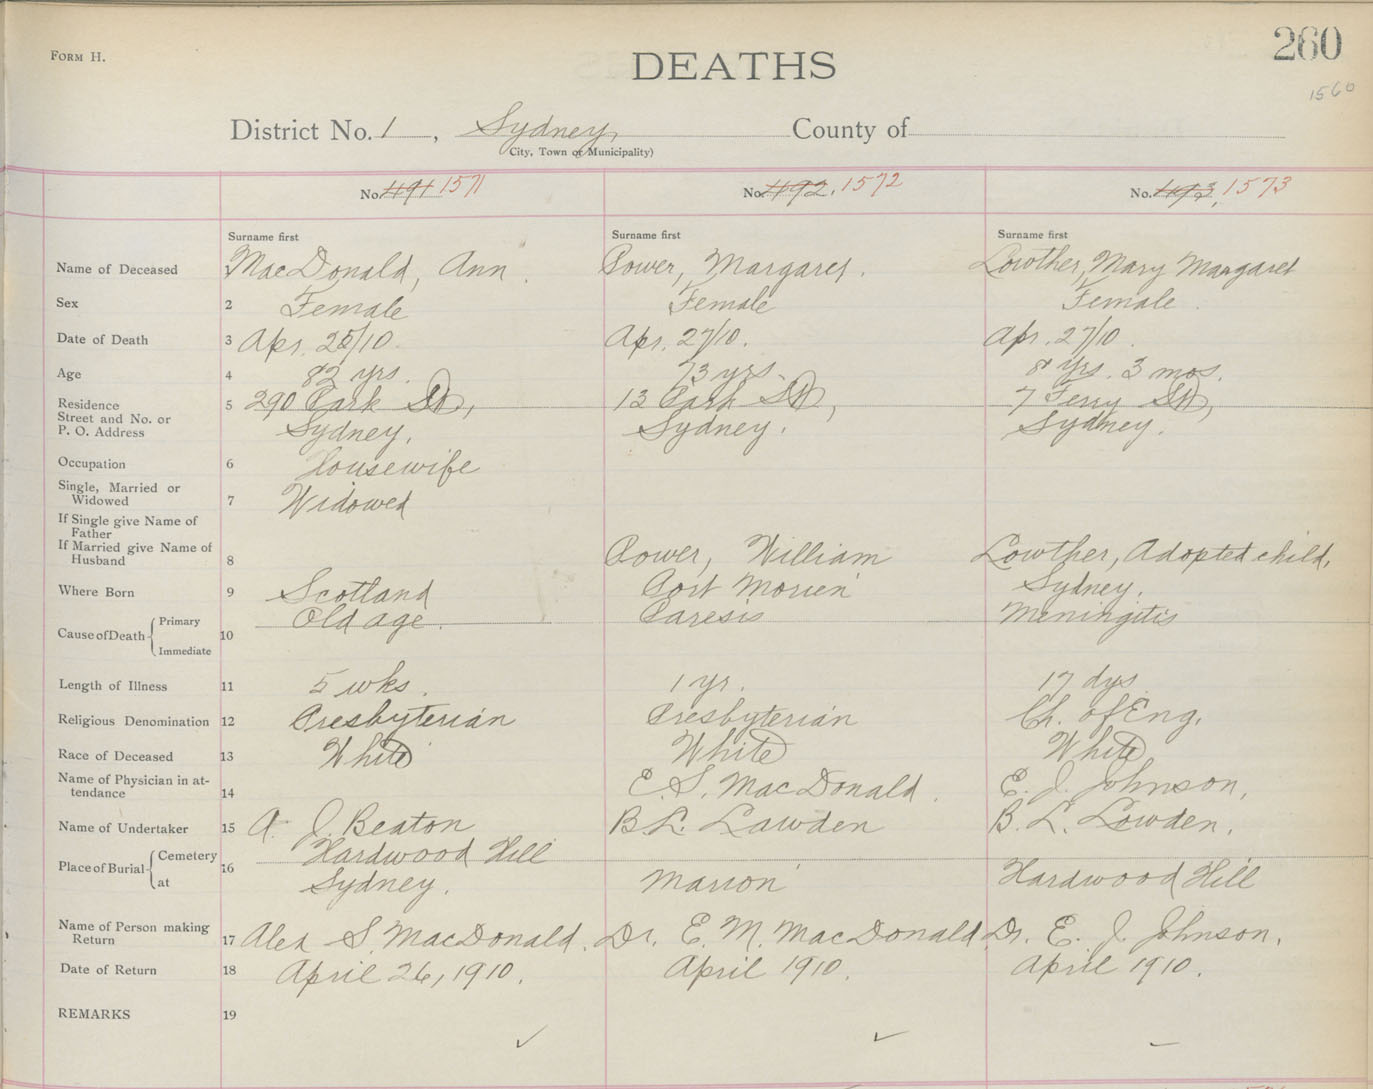 Form H.
DEATHS
260
1560
District No. 1, Sydney, County of
City, Town or Municipality)
No. 491 1571 No. 492. 1572 No. 493, 1573
Surname first Surname first Surname first
Name of Deceased 1 MacDonald, Ann. Power, Margaret. Lowther, Mary Margaret
Sex 2 Female Female Female.
Date of Death 3 Apr. 25/10. Apr. 27/10. Apr. 27/10.
Age 4 82 yrs. 73 yrs. 8 yrs. 3 mos.
Residence 5 290 Park St, 13 Park St, 7 Ferry St,
Street and No. or
P. O. Address Sydney. Sydney. Sydney.
Occupation 6 Housewife
Single, Married or
Widowed 7 Widowed
If Single give Name of
Father
If Married give Name of
Husband 8 Power, William Lowther, Adopted child.
Where Born 9 Scotland Port Morien Sydney.
Cause of Death Primary 10 Old age. Paresis Meningitis
Immediate
Length of Illness 11 5 wks. 1 yr. 17 dys
Religious Denomination 12 Presbyterian Presbyterian Ch. of Eng.
Race of Deceased 13 White White White
Name of Physician in at-
tendance 14 E. S. MacDonald. E. J. Johnson,
Name of Undertaker 15 A. J. Beaton B L. Lawden B. L. Lowden.
Place of Burial Cemetery 16 Hardwood Hill
at Sydney. Marion Hardwood Hill
Name of Person making
Return 17 Alex S. MacDonald. Dr. E. M. MacDonald Dr. E. J. Johnson.
Date of Return 18 April 26, 1910. April 1910. April 1910.
REMARKS 19